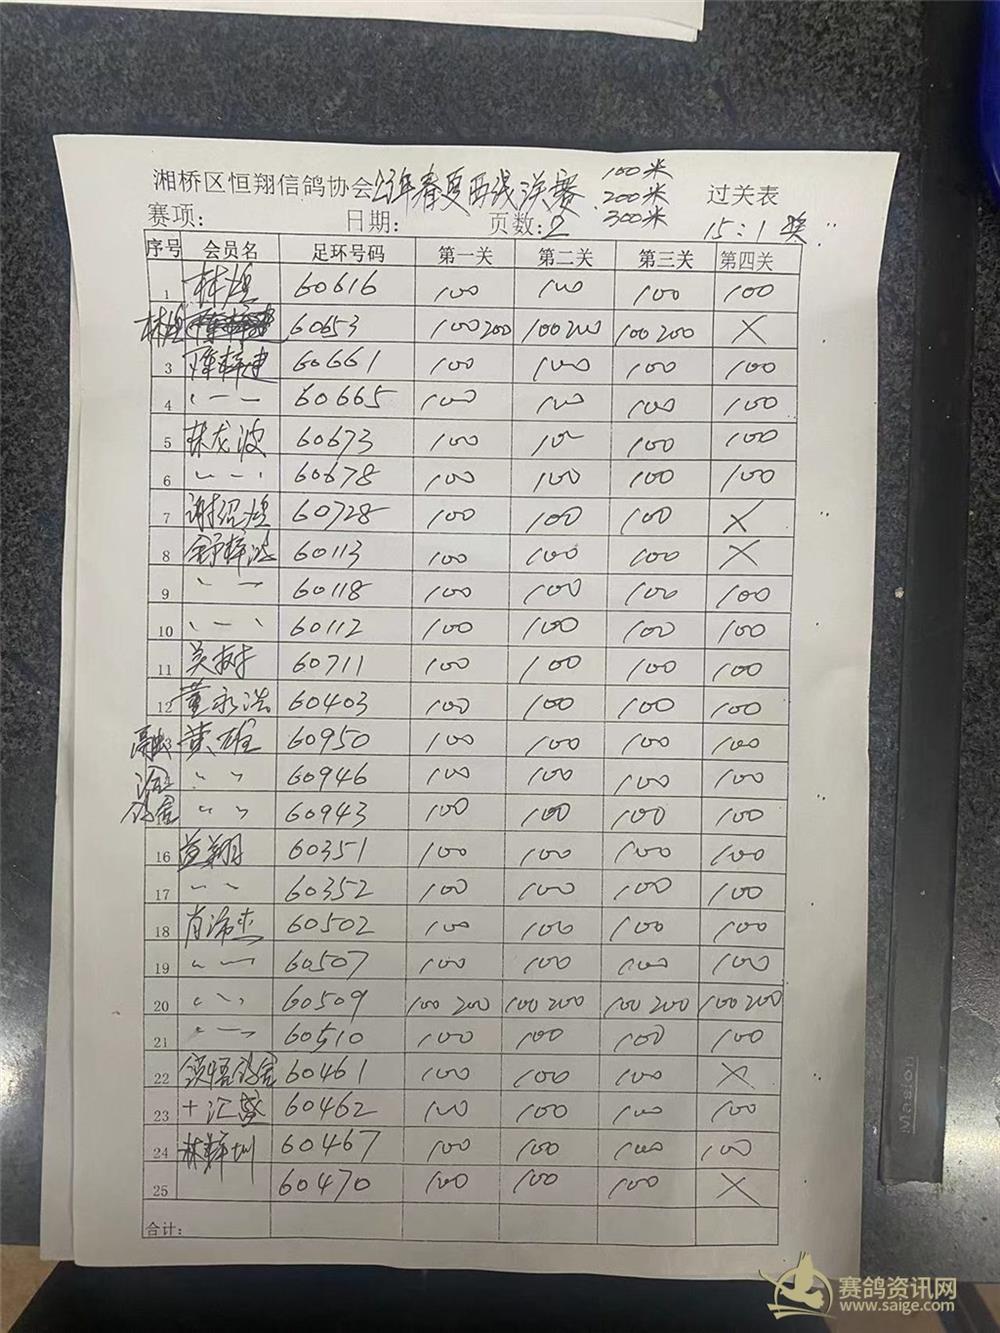 湘桥区恒翔信鸽协会 年春夏西线决赛 100米 过关表
200米
赛项： 日期： 页数：2 300米 15：1 奖
序号 会员名 足环号码 第一关 第二关 第三关 第四关
1 林煌 60616 100 100 100 100
林煌 60653 100 200 100 200 100 200 ×
3 陈梓建 60661 100 100 100 100
4 、一一 60665 100 100 100 100
5 林龙波 60673 100 100 100 100
6 60678 100 100 100 100
7 谢绍煌 60728 100 100 100 ×
8 60113 100 100 100 ×
9 60118 100 100 100 100
10 60112 100 100 100 100
11 吴树 60711 100 100 100 100
12 董永浩 60403 100 100 100 100
黄雄 60950 100 100 100 100
60946 100 100 100 100
60943 100 100 100 100
16 60351 100 100 100 100
17 60352 100 100 100 100
18 肖沛杰 60502 100 100 100 100
19 60507 100 100 100 100
20 60509 100 200 100 200 100 200 100 200
21 60510 100 100 100 100
22 60461 100 100 100 ×
23 60462 100 100 100 100
24 林梓圳 60467 100 100 100 100
25 60470 100 100 100 ×
合计：
Mason
赛鸽资讯网
www.saige.com